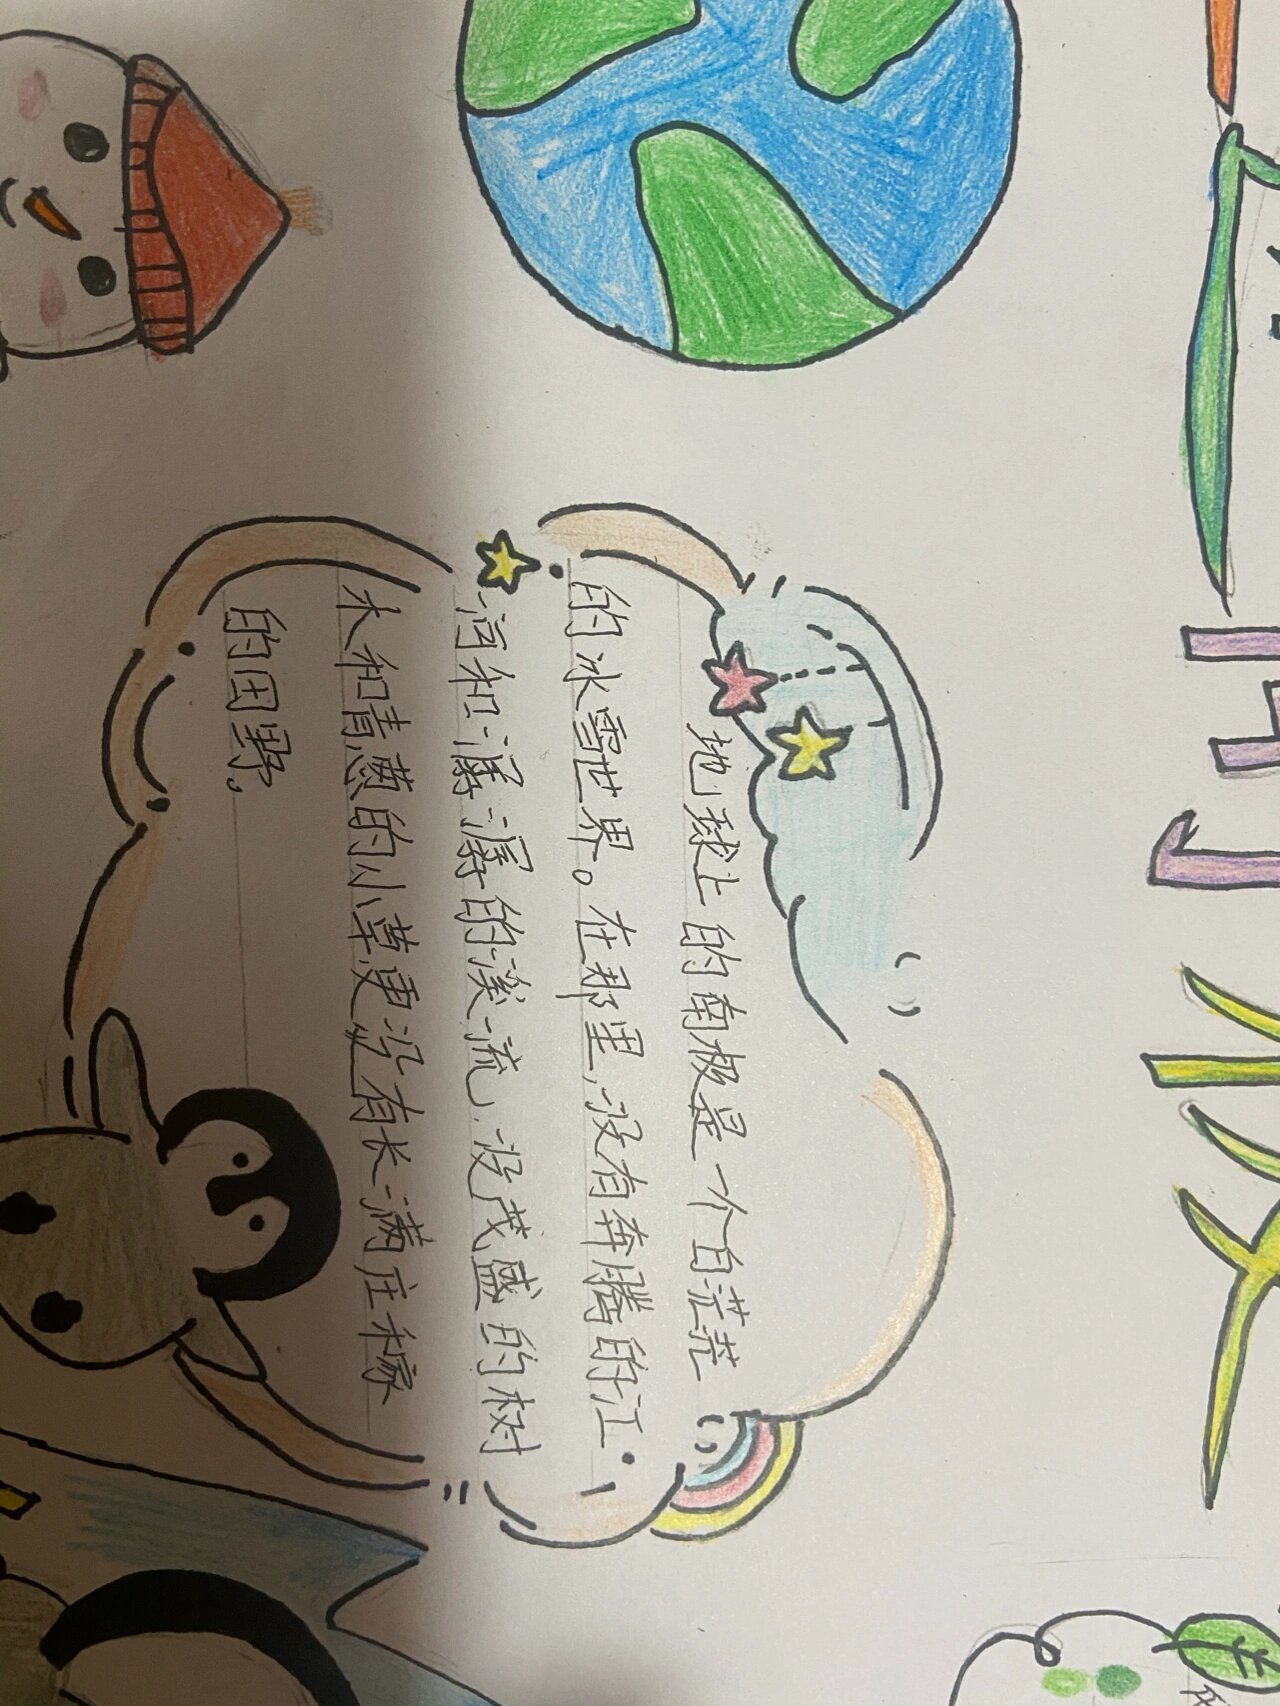 地球上的南极是一个白茫茫
的冰雪世界。在那里,没有奔腾的江
河和潺潺的溪流,没茂盛的树
木和青葱的小草更没有长满庄稼
的田野。